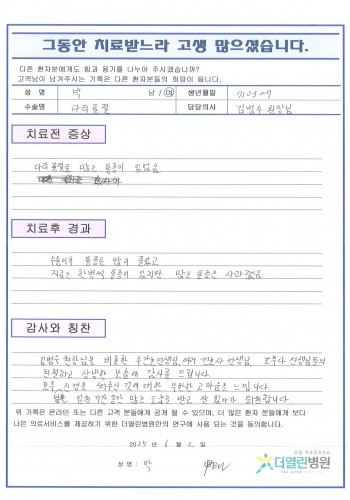 그동안 치료받느라 고생 많으셨습니다.
다른 환자분에게도 힘과 용기를 나누어 주시겠습니까?
고객님이 남겨주시는 기록은 다른 환자분들의 희망이 됩니다.
성 명 박 남 / 여 생년월일 710327
수술명 다리골절 담당의사 김범수 원장님
치료전 증상
다리 골절로 많은 통증이 있었음
치료후 경과
수술이후 통증은 많이 줄었고
지금은 한번씩 통증이 있지만 많은 통증은 사라졌음
감사와 칭찬
김범수 원장님을 비롯한 수간호선생님, 여러 간호사 선생님, 조무사 선생님들의
친절하고 상냥한 모습에 감사를 드립니다.
모두 신경을 써주신 것에 대한 무한한 고마움을 느낍니다.
입원기간동안 많은 도움을 받고 잘 있다가 퇴원합니다
위 기록은 온라인 또는 다른 고객 분들에게 공개 될 수 있으며, 더 많은 환자 분들에게 보다
나은 의료서비스를 제공하기 위한 더열린병원만의 연구에 사용 되는 것을 동의합니다.
2025 년 6 월 2 일
성 명 : 박
더열린병원